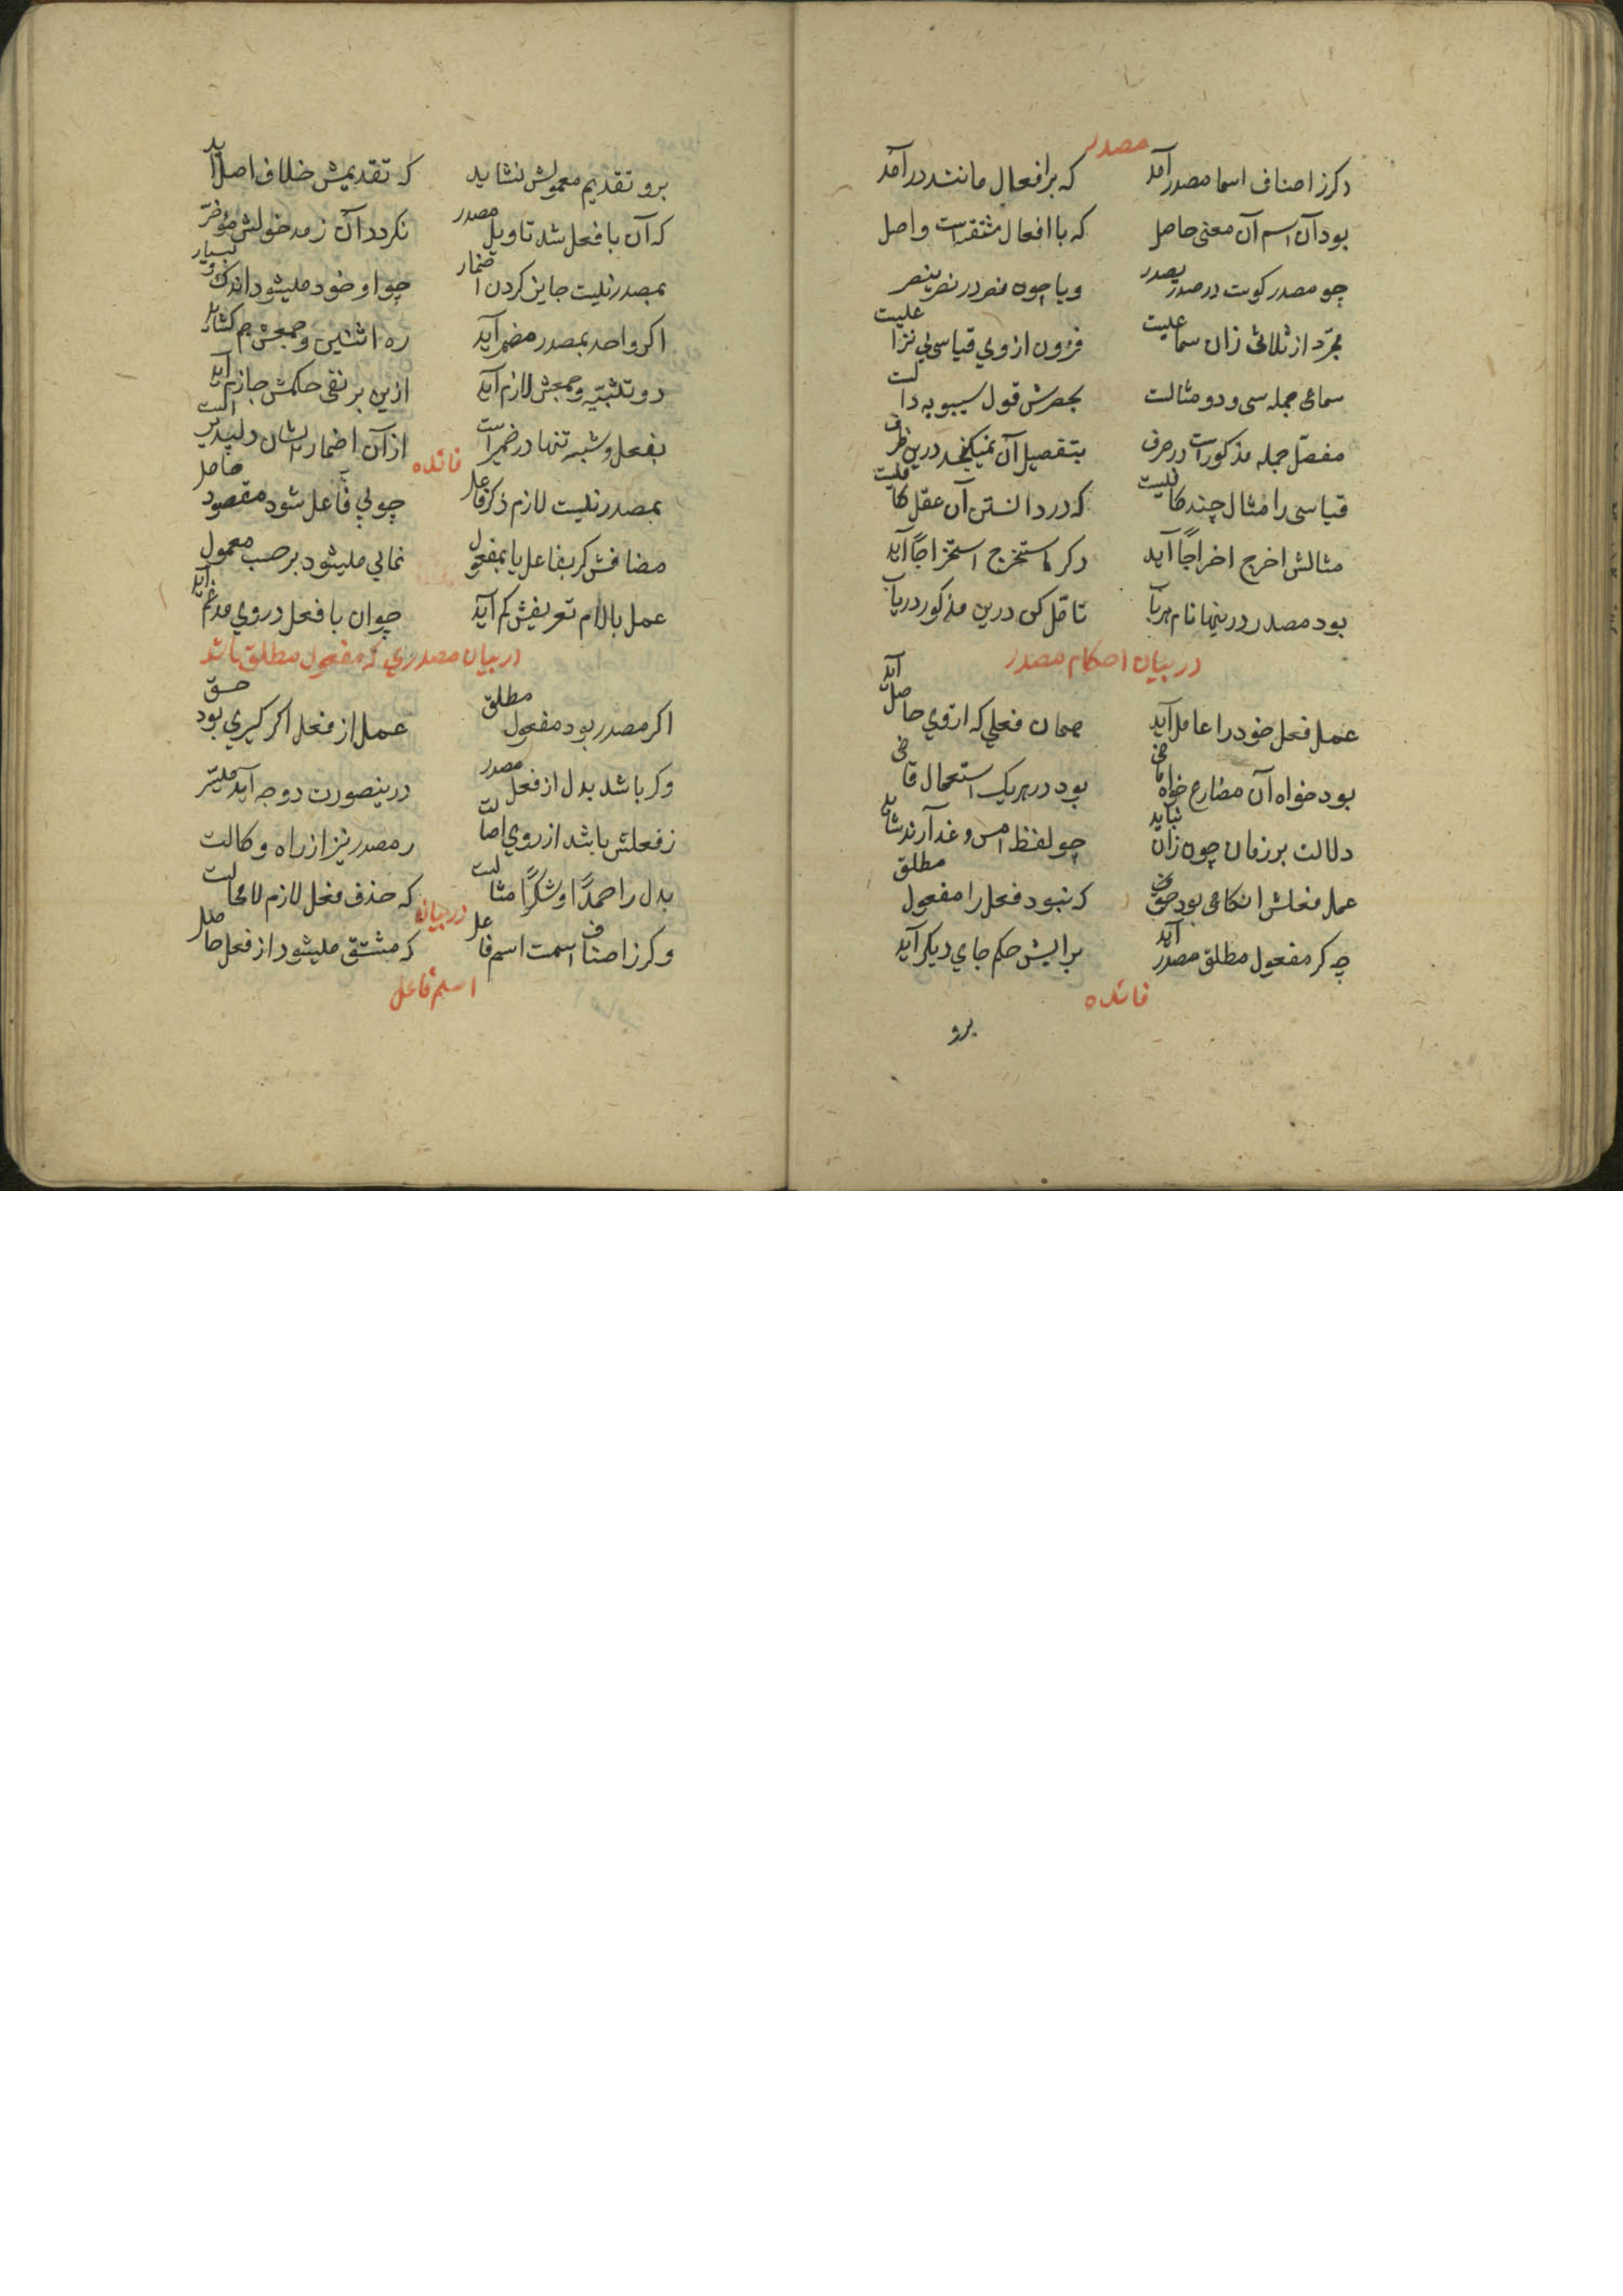 مصدر
دکر ز اصناف اسما مصدر آمد که بر افعال مانند در آمد
بود آن اسم آن معنی حاصل که با افعال مشتقراست واصل
چو مصدر کوست در صدر یصدر ویا چون نصر در نصر ینصر
مجرد از ثلاثی زان سماعیست فزون از وی قیاسی بی نزاعیست
سماعی جمله سی و دو مثالست بحصرش قول سیبویه دالست
مفصل جمله مذکور است در صرف بتفصیل آن نمیکنجد درین ظرف
قیاسی را مثال چند کافیست که در دانستن آن عقل کافیست
مثالش اخرج اخراجا آید دکر استخرج استخراجا آید
بود مصدر درینها نام هر باب تامل کن درین مذکور دریاب
در بیان احکام مصدر
عمل فعل خود را عامل آید همان فعلی که از وی حاصل آید
بود خواه آن مضارع خواه ماضی بود در هریک استعمال قاضی
دلالت بر زمان چون زان نباید چو لفظ امس و غد آرند شاید
عمل فعلش انکاهی بود حق که نبود فعل را مفعول مطلق
چه کر مفعول مطلق مصدر آید برایش حکم جای دیکر آید
فائده
برو
برو تقدیم معمولش نشاید که تقدیمش خلاف اصل آید
که آن با فعل شد تاویل مصدر نکردد آن ز مدخولش مؤخر
بمصدر نیست جایز کردن اضمار چو او خود میشود اندک و بسیار
اکر واحد بمصدر مضمر آید ره اثنین و جمعش هم کشاید
دو تثنیه و جمعش لازم آید ازین بر نفی حکمش جازم آید
بفعل و شبه تنها در ضمیر است از آن اضمار شان دلپذیر است
فائده
بمصدر نیست لازم ذکر فاعل چو بی فاعل شود مقصود حاصل
مضافش کر بفاعل یا بمفعول نمایی میشود بر حسب معمول
عمل باللام تعریفش کم آید چو ان با فعل در وی مدغم آید
در بیان مصدری که مفعول مطلق باشد
اکر مصدر بود مفعول مطلق عمل از فعل اکر کیری بود حق
وکر باشد بدل از فعل مصدر درینصورت دو وجه آید میسر
ز فعلش باشد از روی اصالت ز مصدر نیز از راه وکالت
بدل را حمدا و شکرا مثالست که حذف فعل لازم لامحالست
در بیان
وکر ز اصناف اسمت اسم فاعل که مشتق میشود از فعل حاصل
اسم فاعل